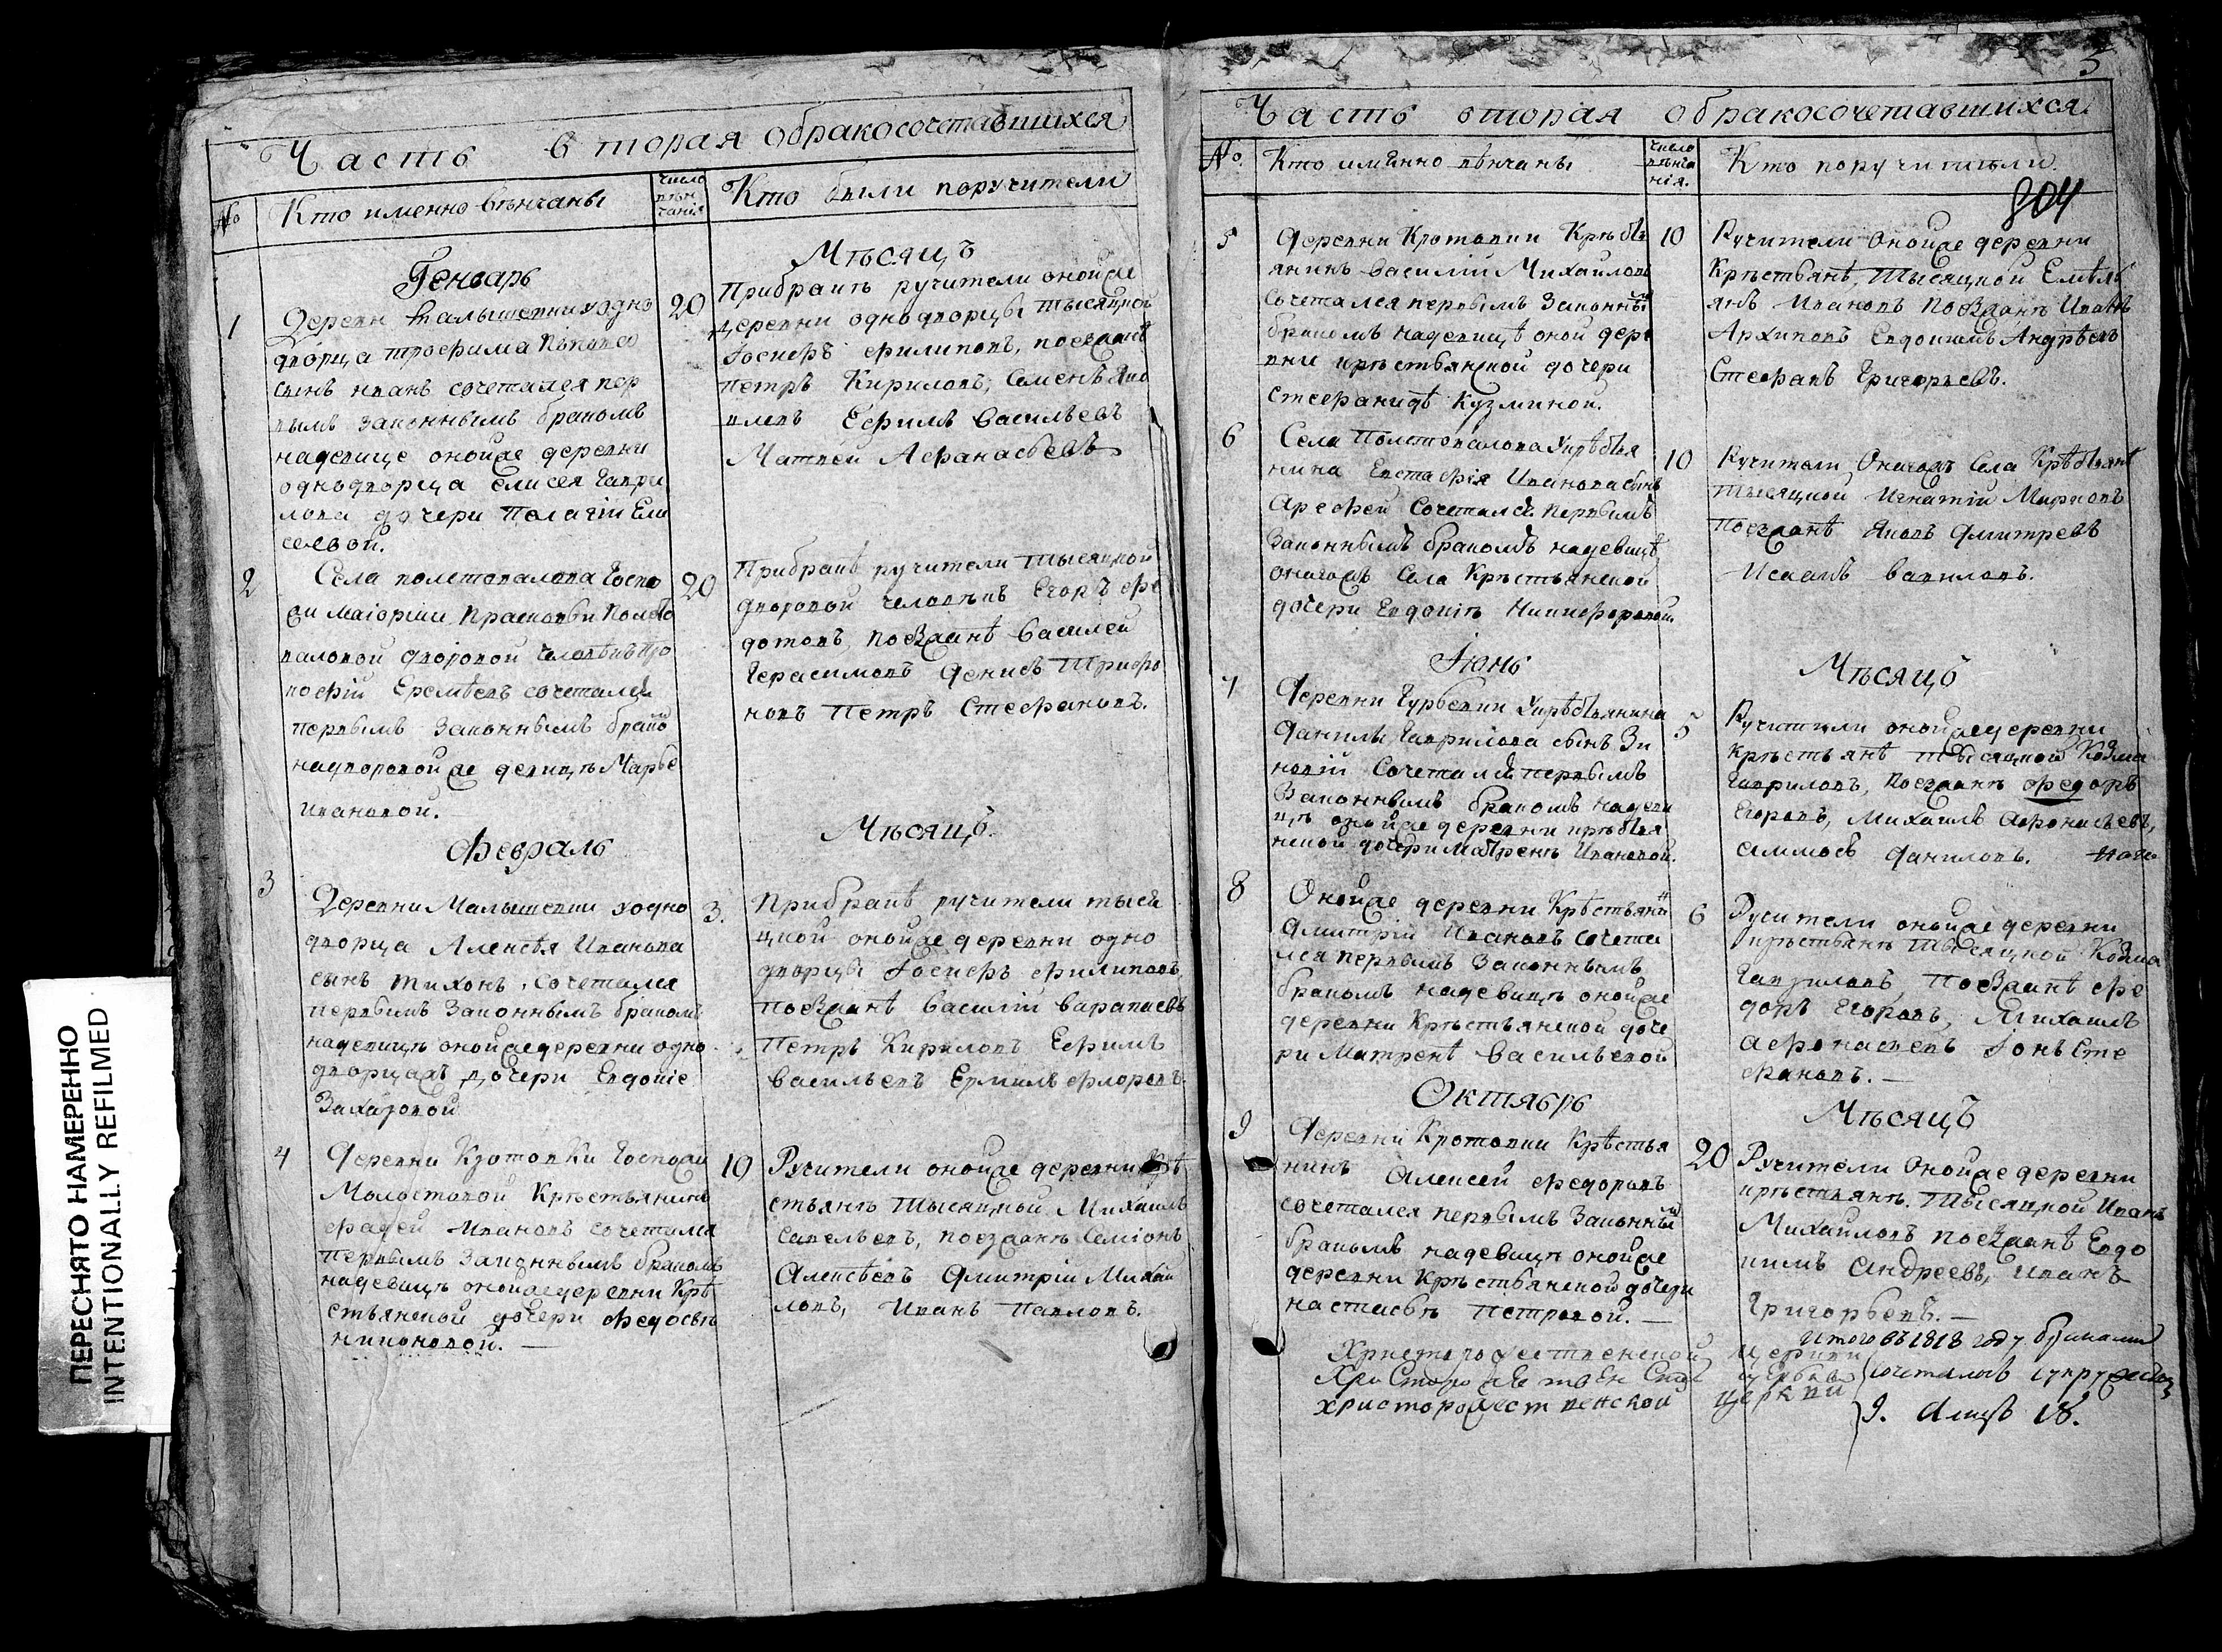 Часть вторая обракосочетавшихся
№
Кто именно венчаны
число венчания
Кто были поручители
Генварь
Месяцъ
1
Деревн Малышевки ходно
дворца Трофима
сынъ иванъ сочетался пер
вымъ законнымъ бракомъ
надевице онойже деревни
однодворца Елисея Гаври
лова дочери Пелагіи Ели
сеевой.
20
Прибракѣ ручители онойже
деревни однодворцы тысяцкой
Іосифъ филиповъ, поезжанѣ
петръ Кириловъ, Семенъ Яко
влевъ Ефимъ Васильевъ
Матвей Афанасьевъ
2
Села полстовалова Госпо
жи маіорши Прасковьи Полсто
валовой дворовой человѣкъ Про
кофій Еремѣевъ сочетался
первымъ законнымъ брако
надворовойже девицѣ Марье
ивановой.
20
Прибракѣ ручители тысяцкой
дворовой человѣкъ Егоръ фе
дотовъ, поезжанѣ Василей
Герасимовъ Денисъ Трифо
новъ Петръ Стефановъ.
Февраль
Месяцъ.
3
Деревни Малышевки ходно
дворца Алексѣя Иванова
сынъ тихонъ, сочетался
первымъ законнымъ бракомъ
надевицѣ онойже деревни одно
дворцажъ дочери Евдокіе
Захаровой
3.
Прибракѣ ручители тыся
цкой онойже деревни одно
дворцы Іосифъ филиповъ,
поезжанѣ Василій
Петръ Кириловъ Ефимъ
Васильевъ Ермилъ флоровъ.
4
Деревни Кротовки Госпожи
Молостовой Крестьянинъ
фадей Ивановъ сочетался
первымъ законнымъ бракомъ
надевицѣ онойже деревни Крѣ
стьянской дочери федосьѣ
никоновой.
10
Ручители онойже деревни Крѣ
стьянѣ тысяцкой Михаилъ
Савельевъ, поезжанѣ Семіонъ
Алексѣевъ Дмитрій Михай
ловъ, Иванъ Павловъ.
3
Часть вторая обракосочетавшихся
№
Кто имянно венчаны
число венча нія.
Кто поручители.
804
5
Деревни Кротовки Крѣстья
янинъ Василій Михайловъ
сочетался первымъ законны
бракомъ надевицѣ оной дере
вни крѣстьянской дочери
Стефанидѣ Кузминой.
10
Ручители Онойже деревни
Крѣстьянѣ, тысяцкой Емель
янъ Ивановъ Поезжанѣ Иванъ
Архиповъ Евдокимъ Андрѣевъ
Стефанъ Григорьевъ.
6
Села Полстовалова Крѣстья
нина Евстафія Иванова сынъ
Арефей сочетался первымъ
Законнымъ бракомъ надевицѣ
оногожъ Села Крѣстьянской
дочери Евдокіѣ Никифоровой.
10
Ручители Оногожъ Села Крѣстьянѣ
тысяцкой Игнатій Мироновъ
Поезжанѣ Яковъ Дмитревъ
Исаакъ Вавиловъ.
Іюнь
Месяцъ
7
Деревни Гурьевки Крѣстьянина
Данилы Гаврилова сынъ Зи
новій Сочетался первымъ
Законнымъ бракомъ надеви
цѣ онойже деревни крѣстья
нской дочери матренѣ Ивановой.
5
Ручители онойже деревни
крѣстьянѣ тысяцкой Козма
Гавриловъ, Поезжанѣ федоръ
Егоровъ, Михаилъ Афонасьевъ,
Даниловъ.
8
Онойже деревни Крѣстьяни
Дмитрій Ивановъ сочета
лся первымъ Законнымъ
бракомъ надевицѣ онойже
деревни Крѣстьянской доче
ри Матренѣ Васильевой
6
Ручители онойже деревни
крѣстьянѣ тысяцкой Козма
Гавриловъ Поезжанѣ фе
доръ Егоровъ, Михаилъ
Афонасьевъ Іонъ Сте
фановъ.
Октябрь
Месяцъ
9
Деревни Кротовки Крѣстья
нинъ Алексей федоровъ
сочетался первымъ Законны
бракомъ надевицѣ онойже
деревни Крѣстьянской дочери
настасьѣ петровой.
20
Ручители Онойже деревни
крѣстьянѣ. Тысяцкой Иванъ
Михайловъ поезжанѣ Евдо
кимъ Андреевъ, Иванъ
Григорьевъ.
Христорождественской церкви
Христорождественской церкви
Итого въ 1818 году браками
сочеталось супружествъ
9. а лицъ 18.
ПЕРЕСНЯТО НАМЕРЕННО
INTENTIONALLY REFILMED